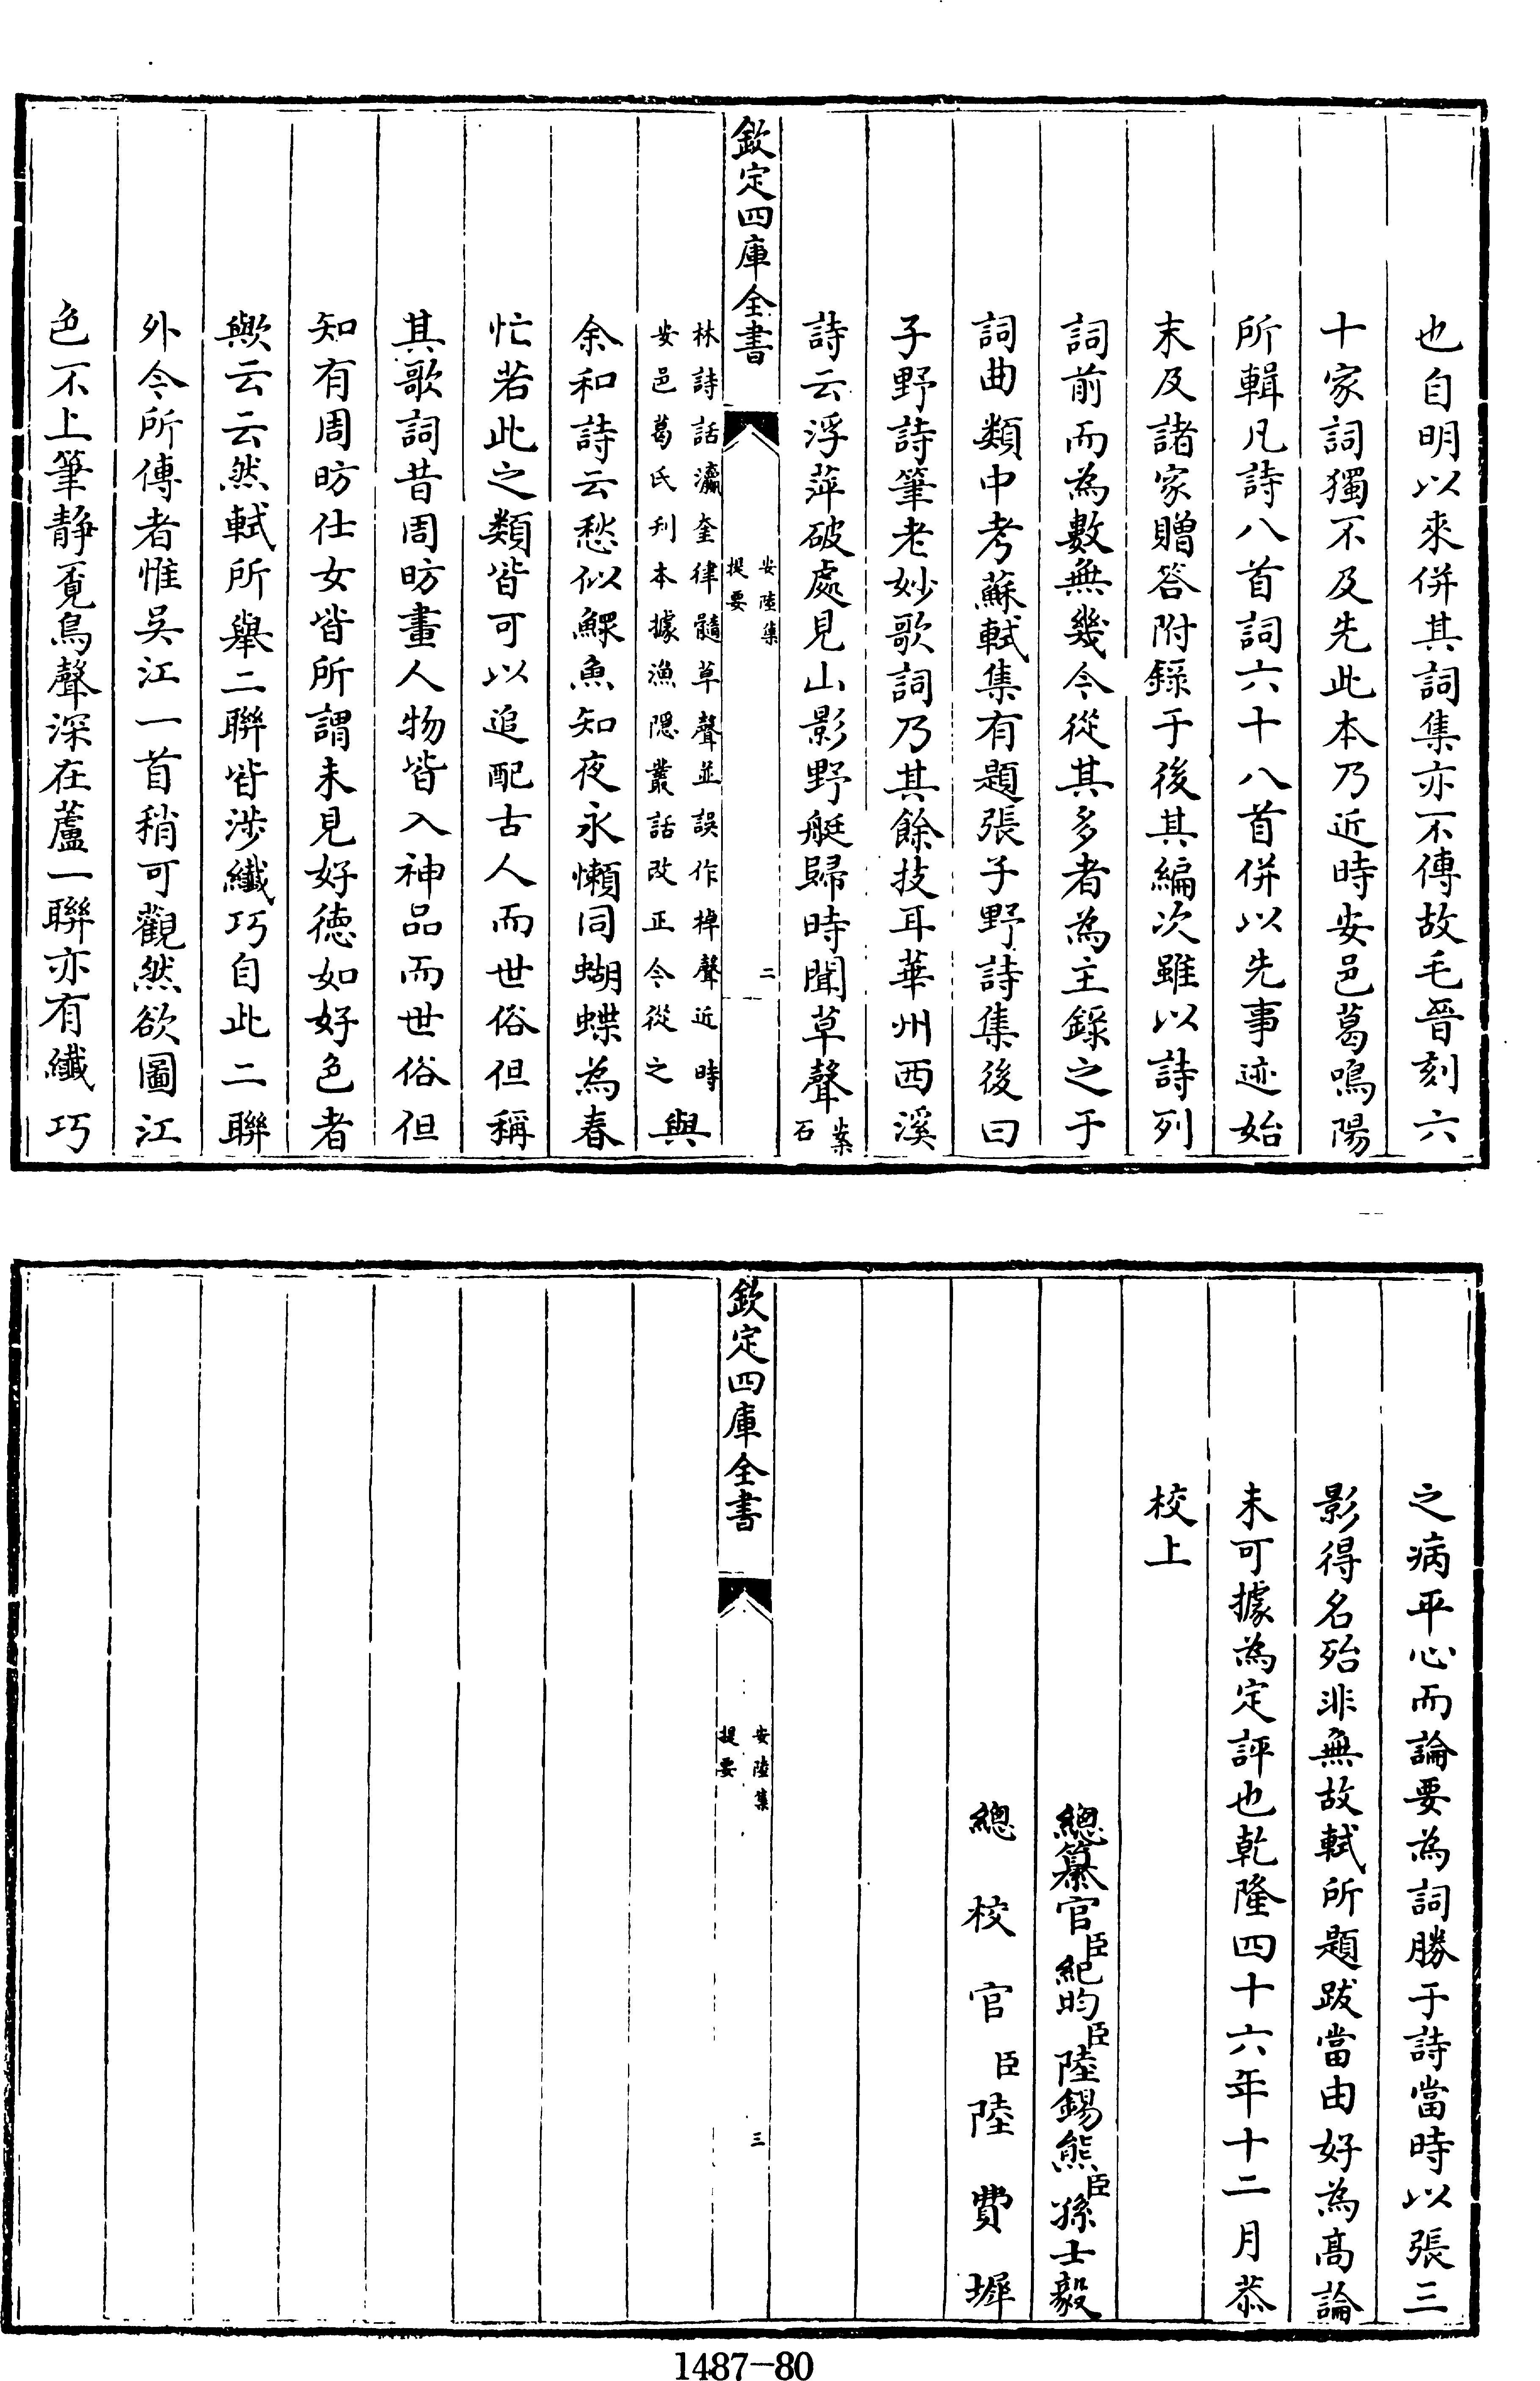 也自明以來併其詞集亦不傳故毛晉刻六
十家詞獨不及先此本乃近時安邑葛鳴陽
所輯凡詩八首詞六十八首併以先事迹始
末及諸家贈答附錄于後其編次雖以詩列
詞前而為數無幾今從其多者為主錄之于
詞曲類中考蘇軾集有題張子野詩集後曰
子野詩筆老妙歌詞乃其餘技耳華州西溪
詩云浮萍破處見山影野艇歸時聞草聲案石
欽定四庫全書
安陸集
提要
二
林詩話瀛奎律髓草聲並誤作棹聲近時
安邑葛氏刋本據漁隱叢話改正今從之
與
余和詩云愁似鰥魚知夜永懶同蝴蝶為春
忙若此之類皆可以追配古人而世俗但稱
其歌詞昔周昉畫人物皆入神品而世俗但
知有周昉仕女皆所謂未見好德如好色者
歟云云然軾所舉二聯皆涉纖巧自此二聯
外今所傳者惟吳江一首稍可觀然欲圖江
色不上筆静覓鳥聲深在蘆一聯亦有纖巧
之病平心而論要為詞勝于詩當時以張三
影得名殆非無故軾所題跋當由好為高論
未可據為定評也乾隆四十六年十二月恭
校上
總纂官臣紀昀臣陸錫熊臣孫士毅
總校官臣陸費墀
欽定四庫全書
安陸集
提要
三
1487-80